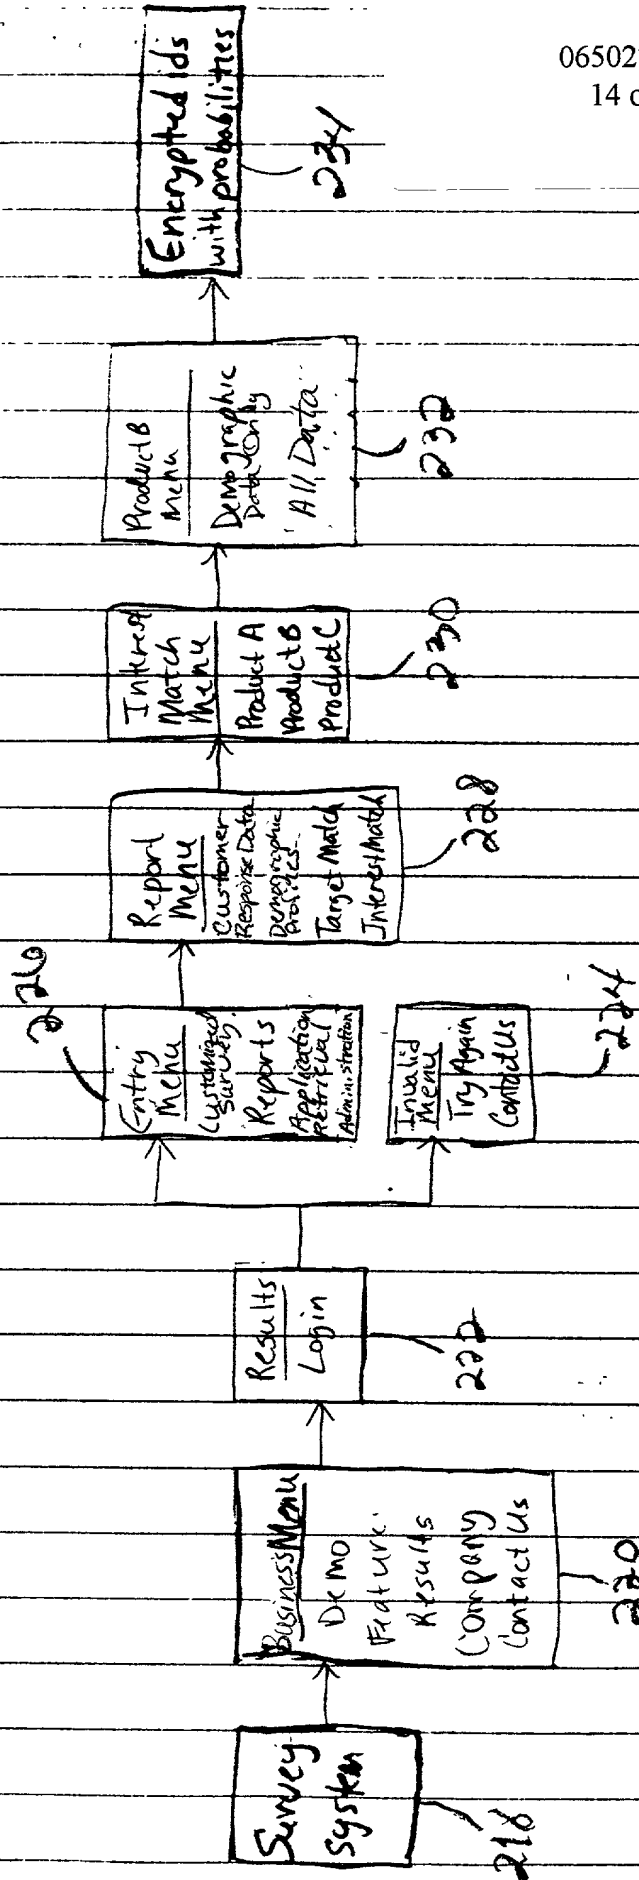 06502
14 o
Survey
System
216
Business Menu
Demo
Feature
Results
Company
Contact Us
220
Results
Login
222
Entry
Menu
Customized
Survey
Reports
Application
Retrieval
Administration
226
Invalid
Menu
Try Again
Contact Us
224
Report
Menu
Customer
Response Data
Demographic
Profiles
Target Match
Interest Match
228
Interest
Match
Menu
Product A
Product B
Product C
230
Product B
Menu
Demographic
Data Only
All Data
232
Encrypted ids
with probabilities
234